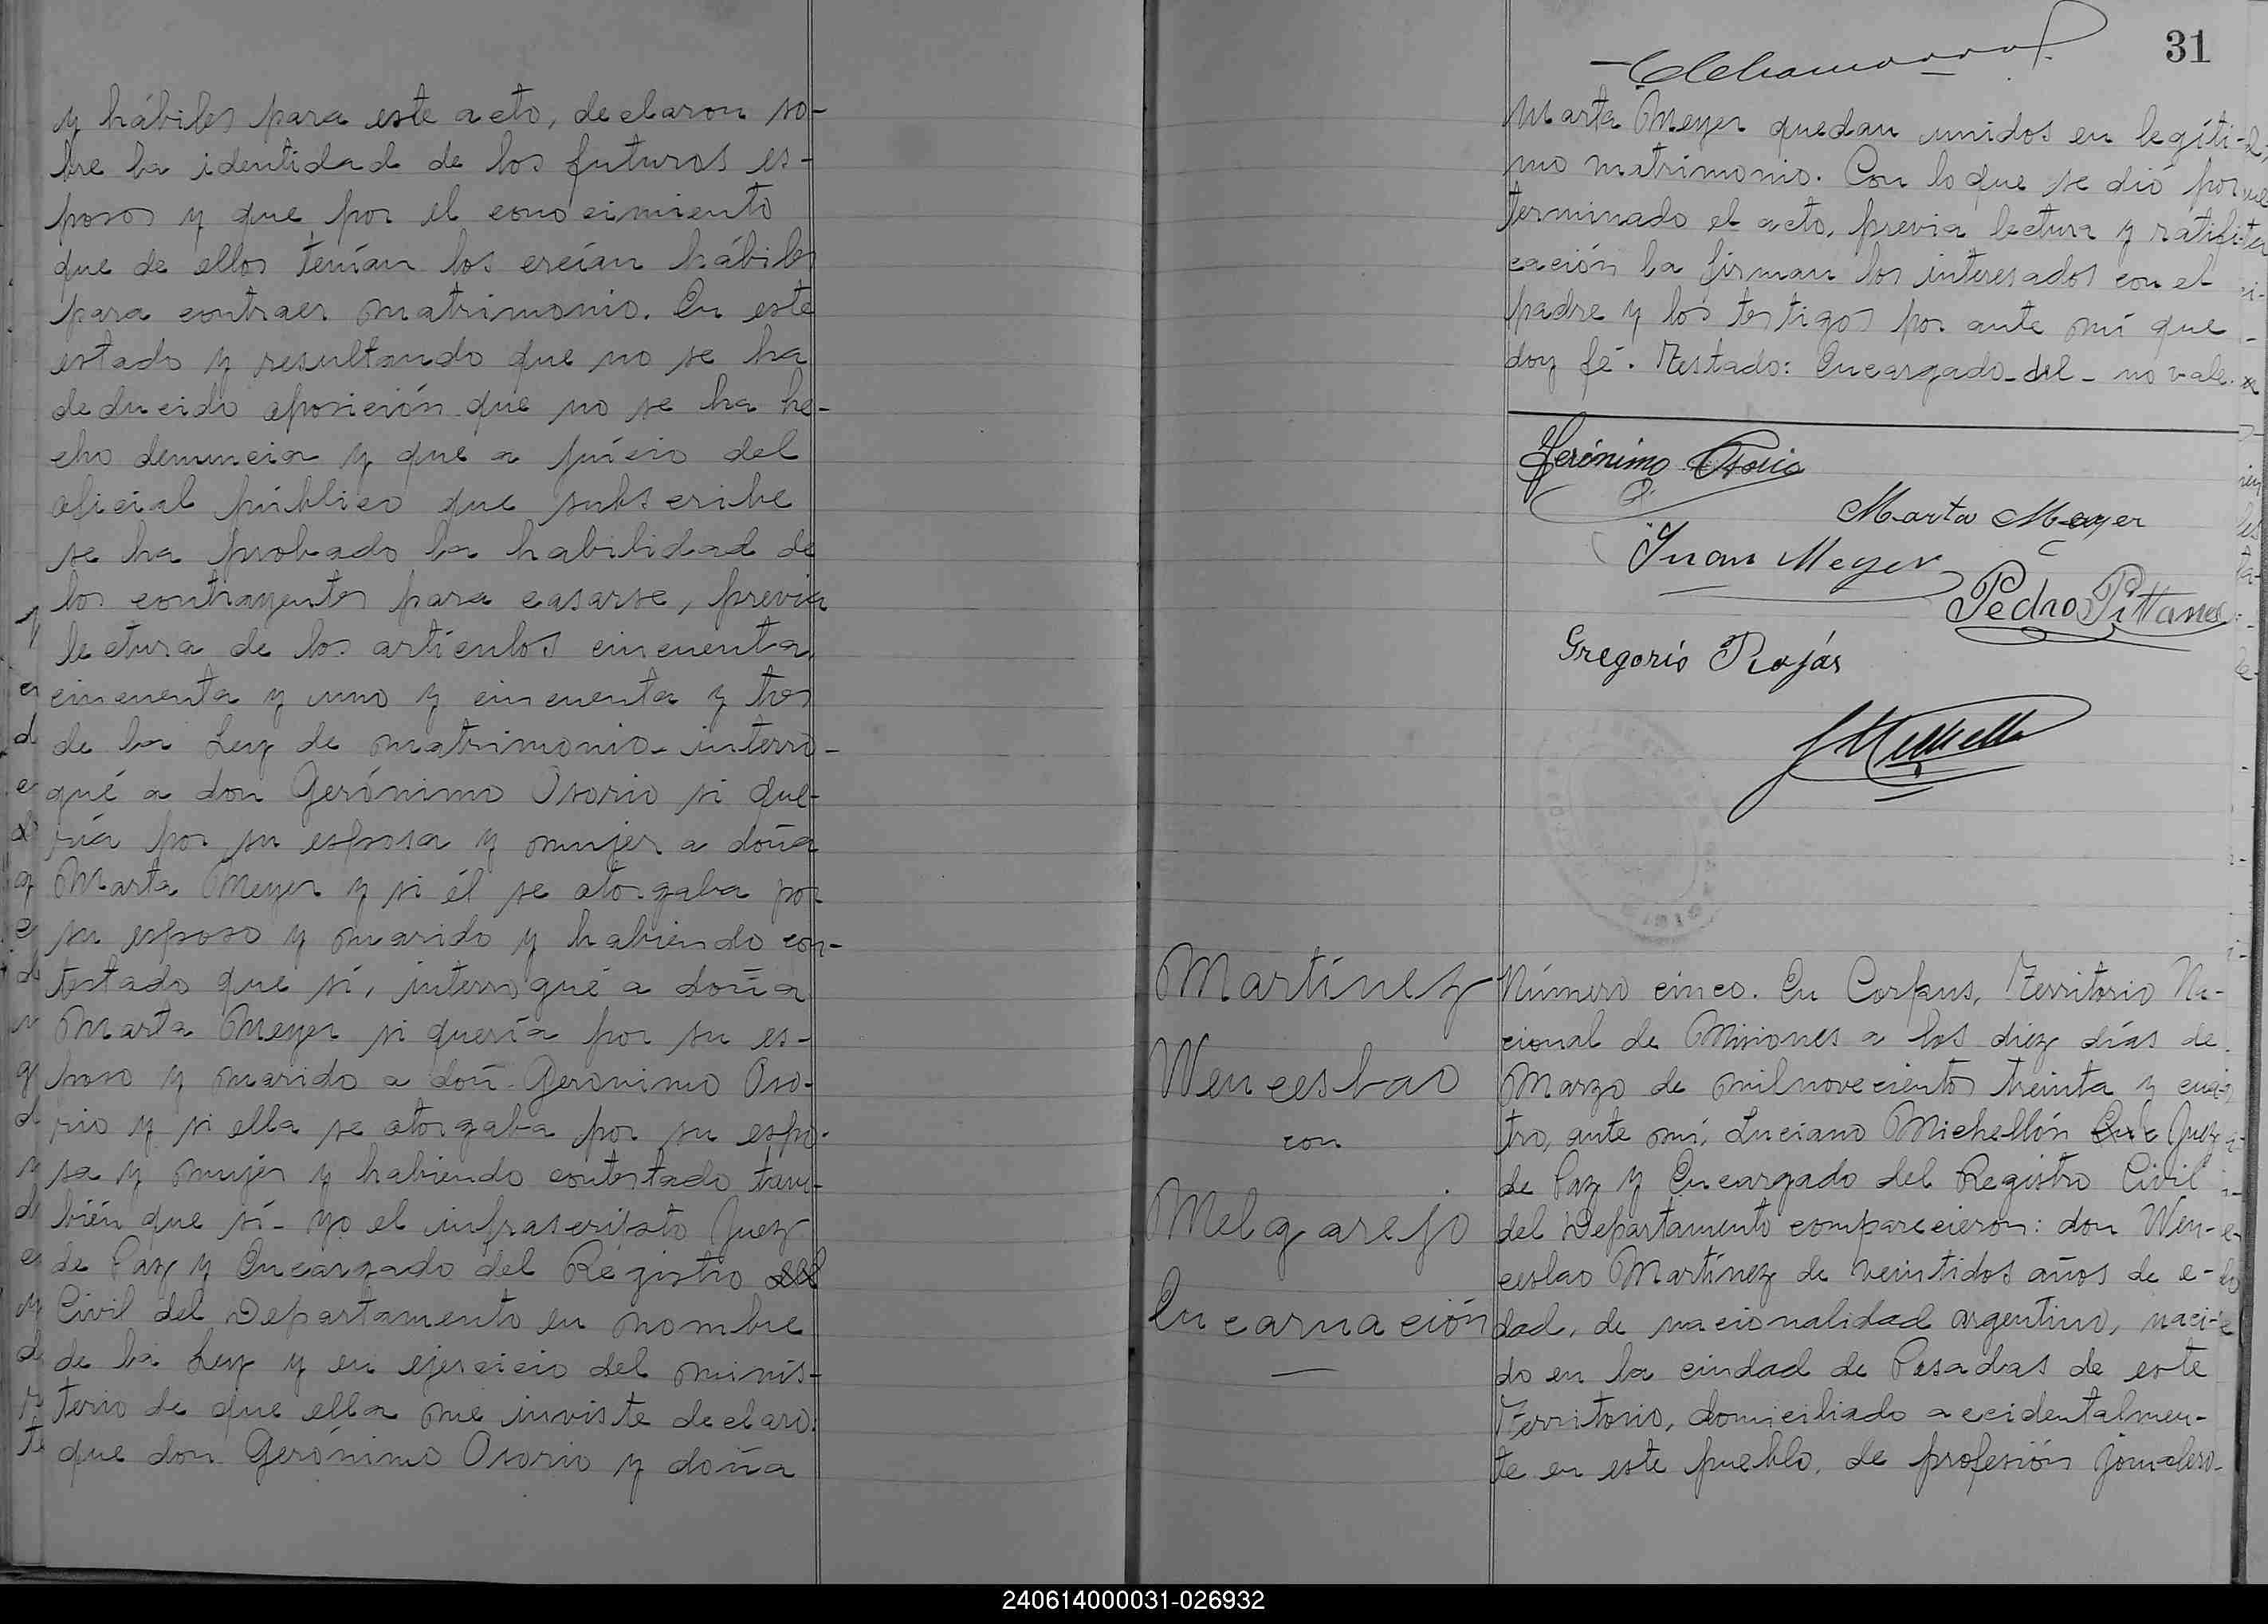 y hábiles para este acto, declaron so-
bre la identidad de los futuros es-
posos y que por el conocimiento
que de ellos tenían los creían hábiles
para contraer matrimonio. En este
estado y resultando que no se ha
deducido oposición que no se ha he-
cho denuncia y que a juicio del
oficial público que subscribe
se ha probado la habilidad de
los contrayentes para casarse, previa
lectura de los artículos cincuenta,
cincuenta y uno y cincuenta y tres
de la Ley de matrimonio- interro-
gué a don Gerónimo Osorio si que-
ría por su esposa y mujer a doña
Marta Meyer y si él se otorgaba por
su esposo y marido y habiendo con-
testado que sí, interrogué a doña
Marta Meyer si quería por su es-
poso y marido a don Geronimo Oso-
rio y si ella se otorgaba por su espo-
sa y mujer y habiendo contestado tam-
bién que sí- yo el infrascripto Juez
de Paz y Encargado del Registro del
Civil del Departamento en nombre
de la Ley y en ejercicio del minis-
terio de que ella me inviste declaro:
que don Gerónimo Osorio y doña
31
Marta Meyer quedan unidos en legíti-
mo matrimonio. Con lo que se dió por
terminado el acto, previa lectura y ratifi-
cación la firman los interesados con el
padre y los testigos por ante mí que
doy fé. Testado: Encargado-del- no vale.
Gerónimo Osorio
Marta Meyer
Juan Meyer
Pedro Pittana
Gregorio Rojás
Martínez
Wenceslao
con
Melgarejo
Encarnación
Número cinco. En Corpus, Territorio Na-
cional de Misiones a los diez días de
Marzo de mil novecientos treinta y cua-
tro, ante mí, Luciano Michellón Juez
de Paz y Encargado del Registro Civil
del Departamento comparecieron: don Wen-
ceslao Martínez de veintidos años de e-
dad, de nacionalidad argentino, naci-
do en la ciudad de Posadas de este
Territorio, domiciliado accidentalmen-
te en este pueblo, de profesión jornalero-
240614000031-026932